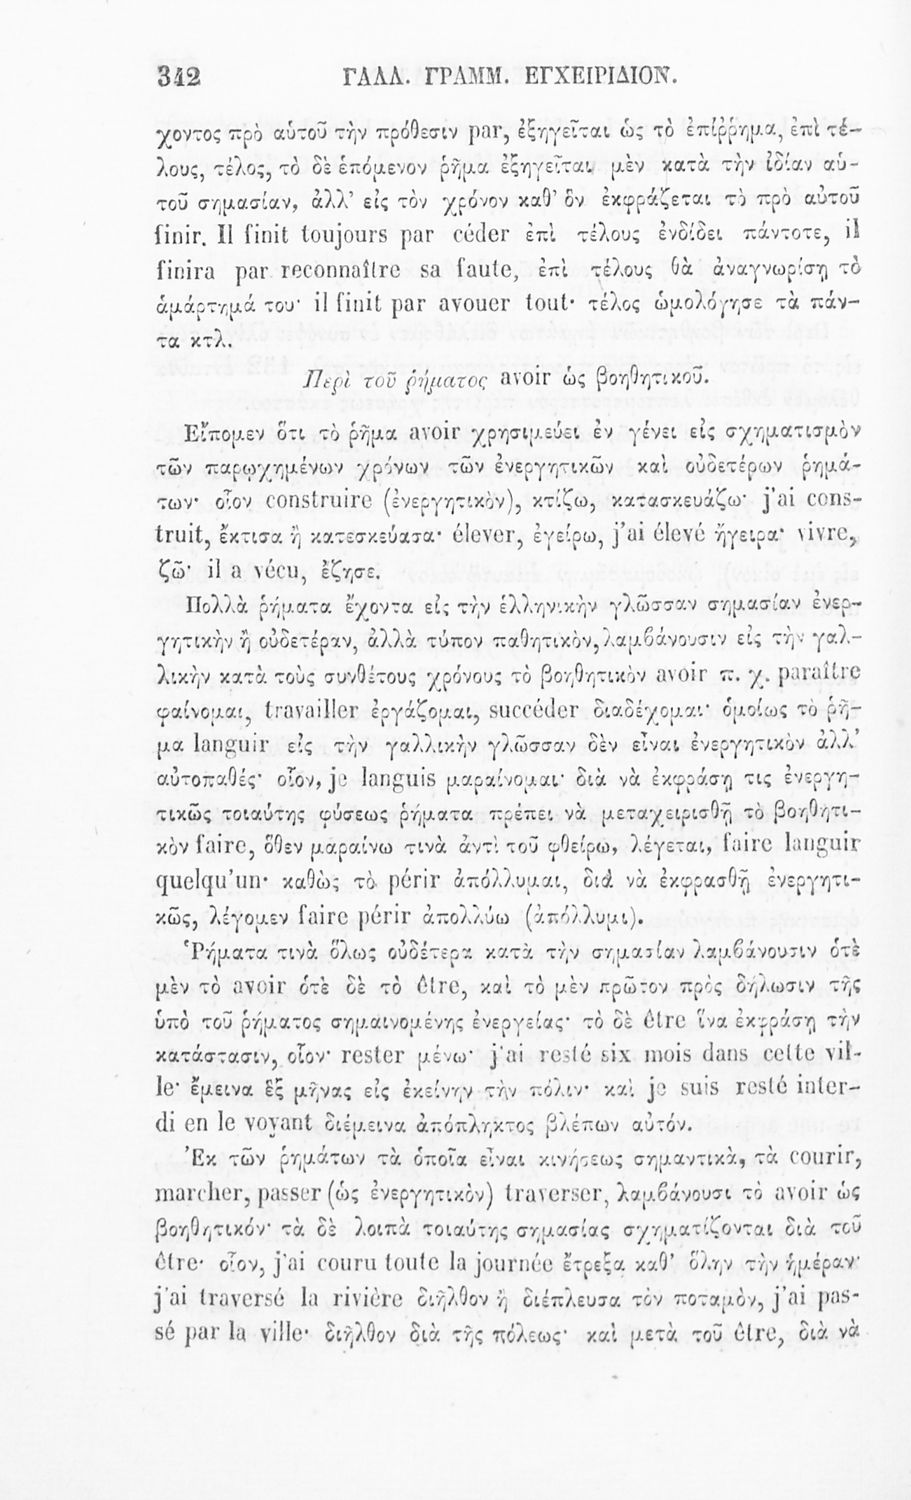 342 ΓΑΛΛ. ΓΡΑΜΜ. ΕΓΧΕΙΡΙΔΙΟΝ.
χοντος πρὸ αὑτοῦ τὴν πρόθεσιν par, ἐξηγεῖται ὡς τὸ ἐπίῤῥημα, ἐπὶ τέ-
λους, τέλος, τὸ δὲ ἑπόμενον ῥῆμα ἐξηγεῖται μὲν κατὰ τὴν ἰδίαν αὑ-
τοῦ σημασίαν, ἀλλ’ εἰς τὸν χρόνον καθ’ ὃν ἐκφράζεται τὸ πρὸ αὐτοῦ
finir. Il finit toujours par céder ἐπὶ τέλους ἐνδίδει πάντοτε, il
finira par reconnaître sa faute, ἐπὶ τέλους θὰ ἀναγνωρίσῃ τὸ
ἁμάρτημά του· il finit par avouer tout· τέλος ὡμολόγησε τὰ πάν-
τα κτλ.
Περὶ τοῦ ῥήματος avoir ὡς βοηθητικοῦ.
Εἴπομεν ὅτι τὸ ῥῆμα avoir χρησιμεύει ἐν γένει εἰς σχηματισμὸν
τῶν παρῳχημένων χρόνων τῶν ἐνεργητικῶν καὶ οὐδετέρων ῥημά-
των· οἷον construire (ἐνεργητικὸν), κτίζω, κατασκευάζω· j’ai cons-
truit, ἔκτισα ἢ κατεσκεύασα· élever, ἐγείρω, j’ai élevé ἤγειρα· vivre,
ζῶ· il a vécu, ἔζησε.
Πολλὰ ῥήματα ἔχοντα εἰς τὴν ἑλληνικὴν γλῶσσαν σημασίαν ἐνερ-
γητικὴν ἢ οὐδετέραν, ἀλλὰ τύπον παθητικὸν, λαμβάνουσιν εἰς τὴν γαλ-
λικὴν κατὰ τοὺς συνθέτους χρόνους τὸ βοηθητικὸν avoir π. χ. paraître
φαίνομαι, travailler ἐργάζομαι, succéder διαδέχομαι· ὁμοίως τὸ ῥῆ-
μα languir εἰς τὴν γαλλικὴν γλῶσσαν δὲν εἶναι ἐνεργητικὸν ἀλλ’
αὐτοπαθές· οἷον, je languis μαραίνομαι· διὰ νὰ ἐκφράσῃ τις ἐνεργη-
τικῶς τοιαύτης φύσεως ῥήματα πρέπει νὰ μεταχειρισθῇ τὸ βοηθητι-
κὸν faire, ὅθεν μαραίνω τινὰ ἀντὶ τοῦ φθείρω, λέγεται, faire languir
quelqu’un· καθὼς τὸ périr ἀπόλλυμαι, διὰ νὰ ἐκφρασθῇ ἐνεργητι-
κῶς, λέγομεν faire périr ἀπολλύω (ἀπόλλυμι).
Ῥήματα τινὰ ὅλως οὐδέτερα κατὰ τὴν σημασίαν λαμβάνουσιν ὁτὲ
μὲν τὸ avoir ὁτὲ δὲ τὸ être, καὶ τὸ μὲν πρῶτον πρὸς δήλωσιν τῆς
ὑπὸ τοῦ ῥήματος σημαινομένης ἐνεργείας· τὸ δὲ être ἵνα ἐκφράσῃ τὴν
κατάστασιν, οἷον· rester μένω· j’ai resté six mois dans cette vil-
le· ἔμεινα ἓξ μῆνας εἰς ἐκείνην τὴν πόλιν· καὶ je suis resté inter-
di en le voyant διέμεινα ἀπόπληκτος βλέπων αὐτόν.
Ἐκ τῶν ῥημάτων τὰ ὁποῖα εἶναι κινήσεως σημαντικὰ, τὰ courir,
marcher, passer (ὡς ἐνεργητικὸν) traverser, λαμβάνουσι τὸ avoir ὡς
βοηθητικόν· τὰ δὲ λοιπὰ τοιαύτης σημασίας σχηματίζονται διὰ τοῦ
être· οἷον, j’ai couru toute la journée ἔτρεξα καθ’ ὅλην τὴν ἡμέραν·
j’ai traversé la rivière διῆλθον ἢ διέπλευσα τὸν ποταμὸν, j’ai pas-
sé par la ville· διῆλθον διὰ τῆς πόλεως· καὶ μετὰ τοῦ être, διὰ νὰ